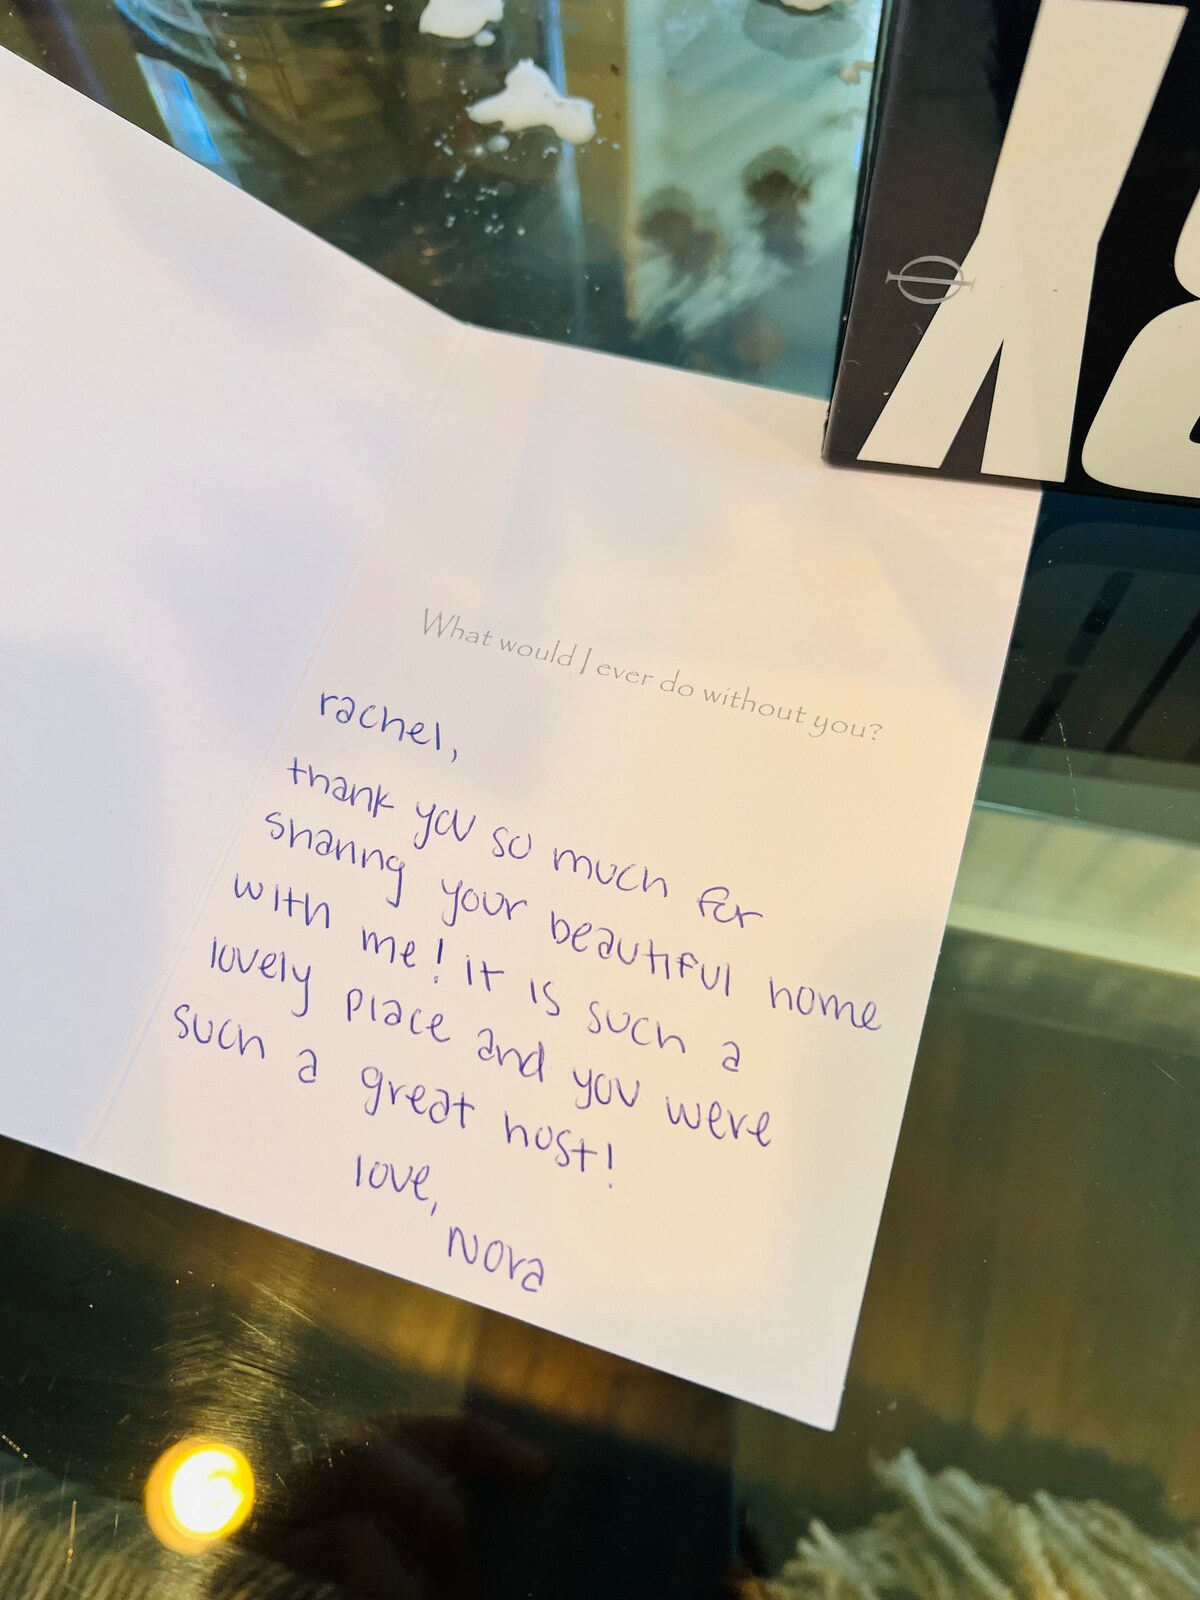 What would I ever do without you?
rachel,
thank you so much for
sharing your beautiful home
with me! it is such a
lovely place and you were
such a great host!
love,
Nora